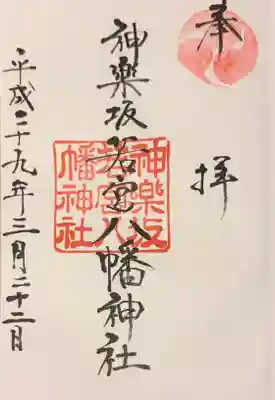 奉拝
神楽坂若宮八幡神社
神樂坂
若宮八
幡神社
平成二十九年三月二十二日